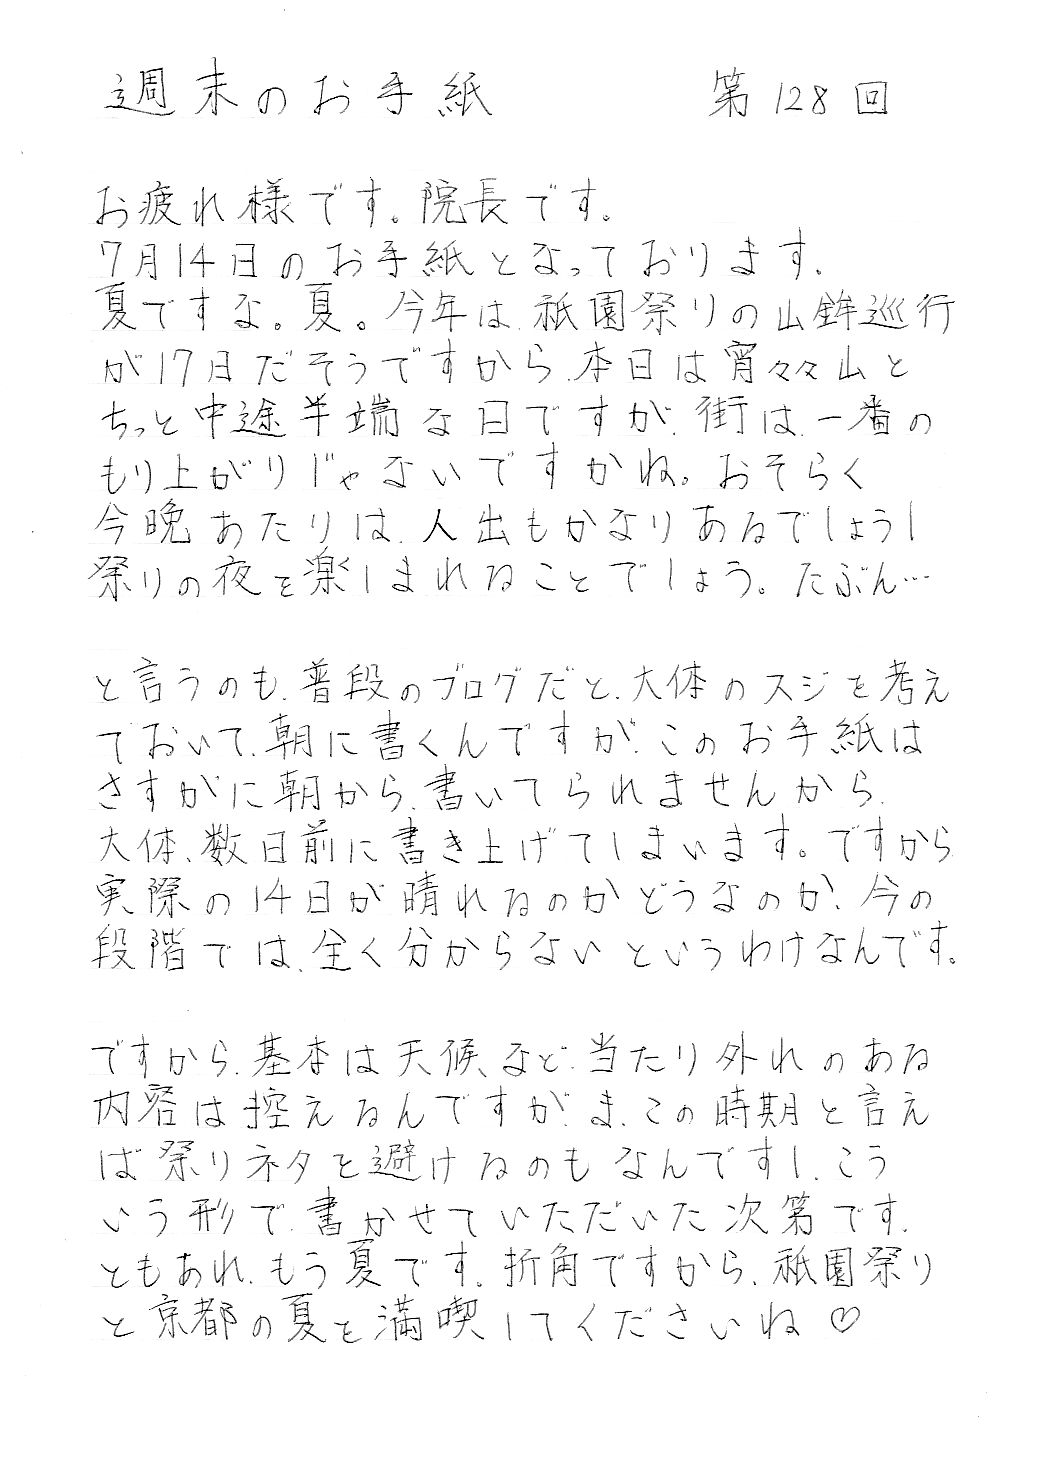 週末のお手紙 第128回
お疲れ様です。院長です。
7月14日のお手紙となっております。
夏ですな。夏。今年は、祇園祭りの山鉾巡行
が17日だそうですから、本日は宵々々山と
ちっと中途半端な日ですが、街は、一番の
もり上がりじゃないですかね。おそらく
今晩あたりは、人出もかなりあるでしょうし
祭りの夜を楽しまれることでしょう。たぶん…
と言うのも、普段のブログだと、大体のスジを考え
ておいて、朝に書くんですが、このお手紙は
さすがに朝から、書いてられませんから、
大体、数日前に書き上げてしまいます。ですから
実際の14日が晴れるのかどうなのか、今の
段階では、全く分からないというわけなんです。
ですから、基本は天候、など、当たり外れのある
内容は控えるんですが、ま、この時期と言え
ば祭りネタを避けるのもなんですし、こう
いう形で、書かせていただいた次第です。
ともあれ、もう夏です。折角ですから、祇園祭り
と京都の夏を満喫してくださいね♡